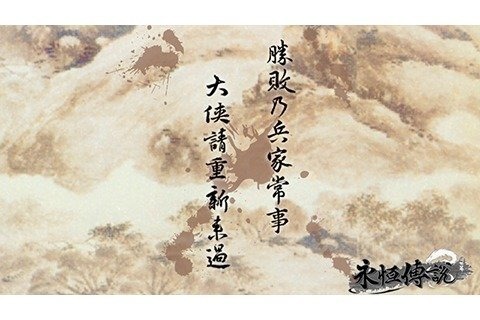 勝敗乃兵家常事
大俠請重新來過
永恆傳說